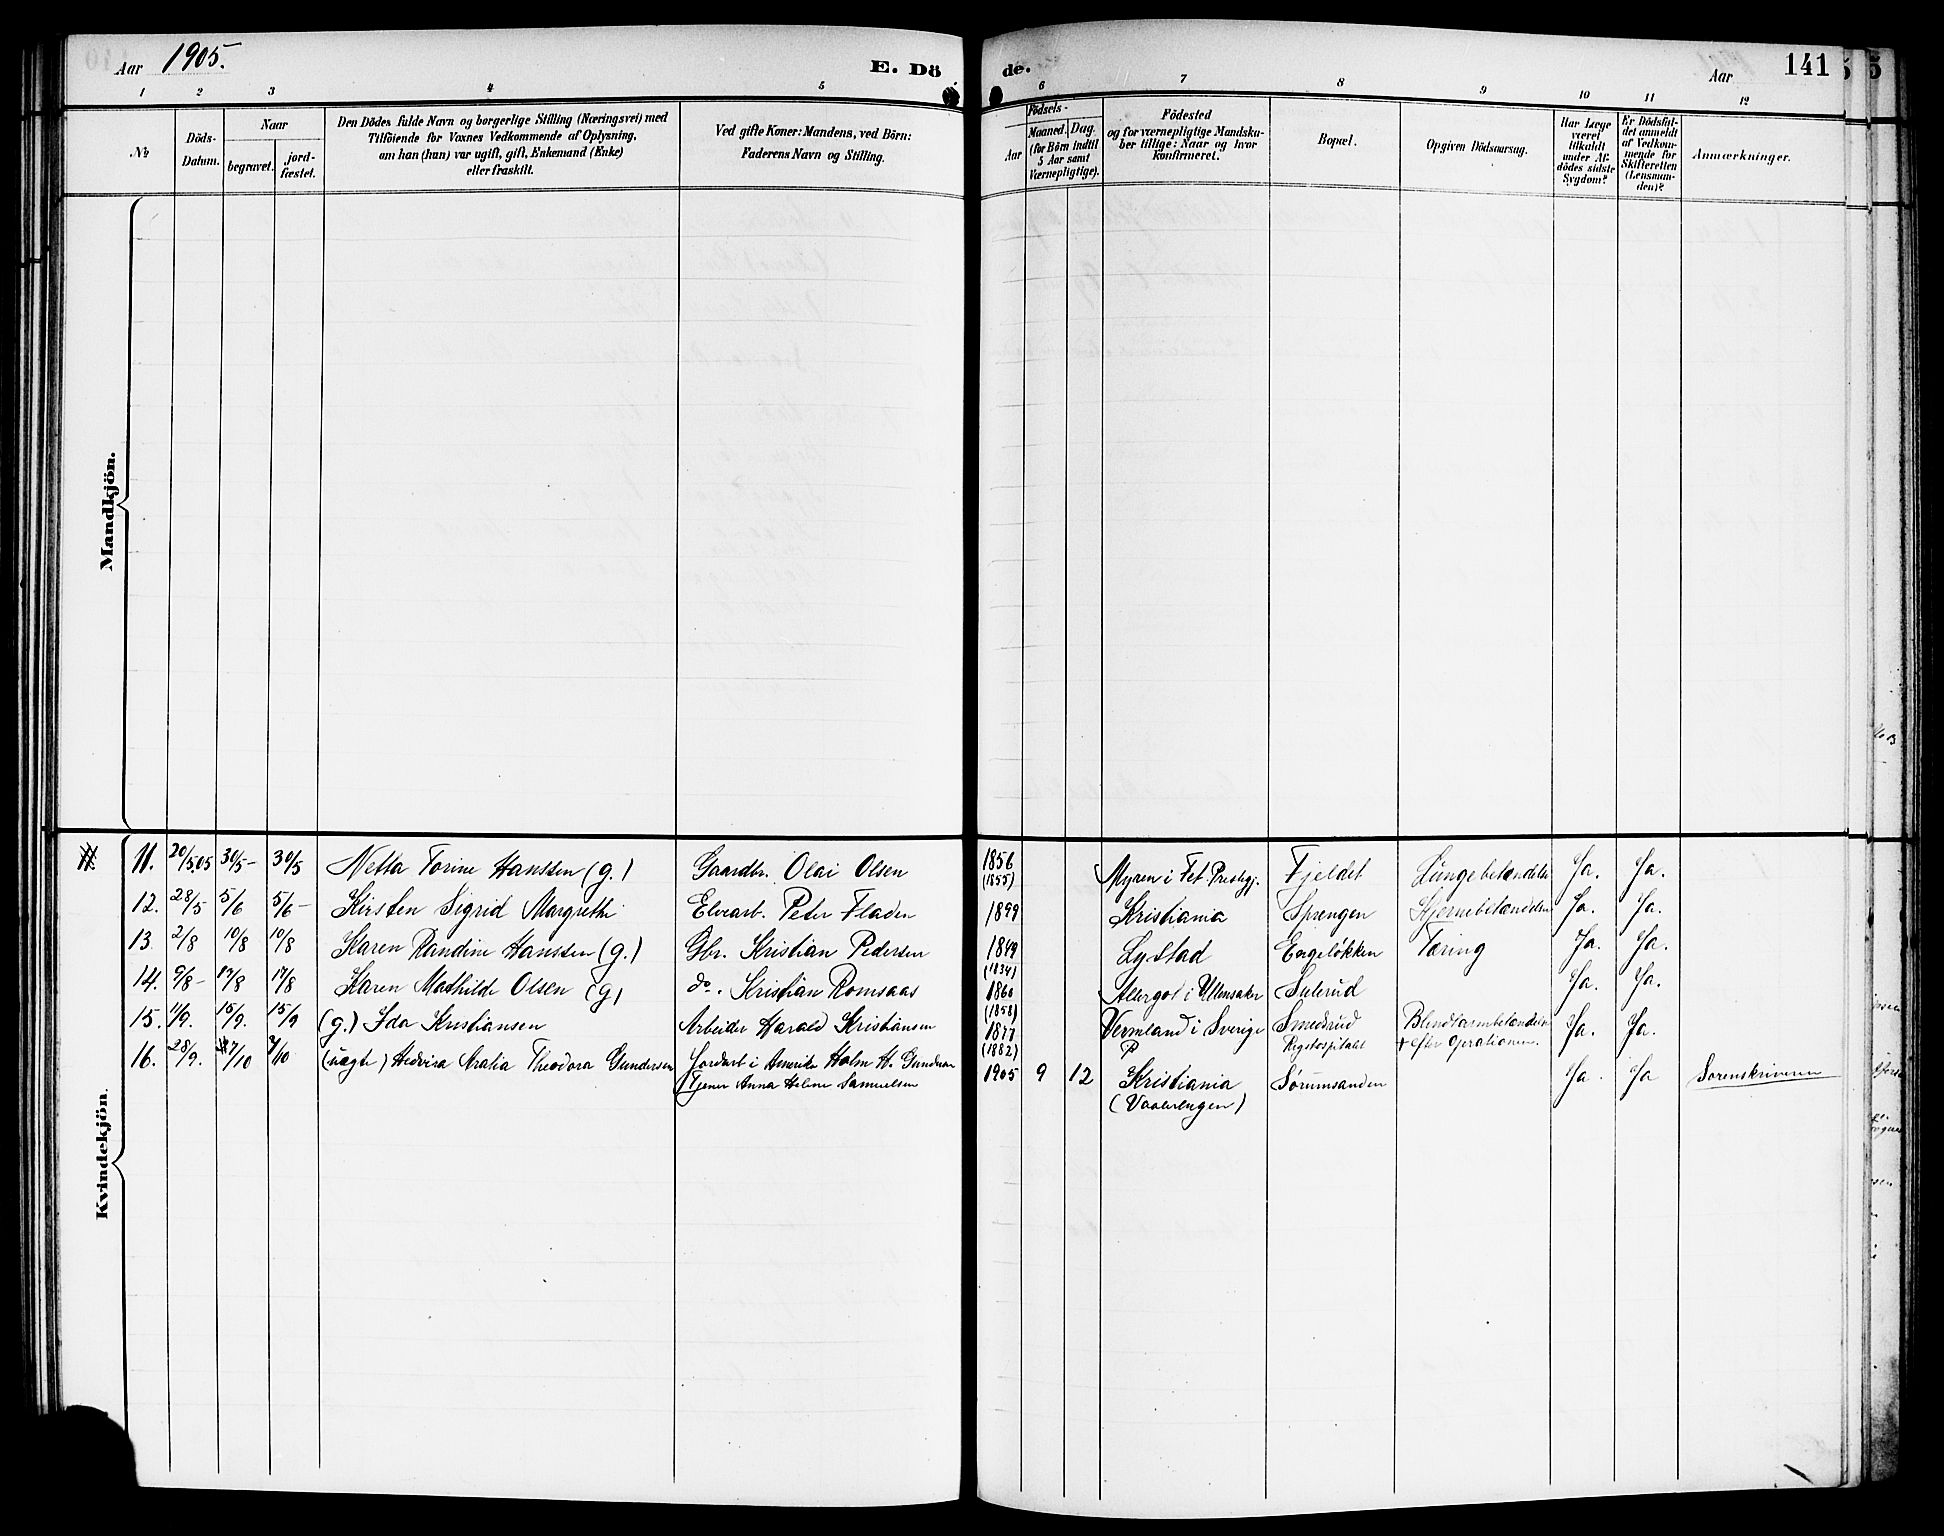 Aar 1905. E. Dö de. Aar 141
1 2 3 4 5 6 7 8 9 10 11 12
№
Döds-
Datum.
Naar
begravet.
jord-
fæstet.
Den Dödes fulde Navn og borgerlige Stilling (Næringsvei) med
Tilföiende for Voxnes Vedkommende af Oplysning,
om han (hun) var ugift, gift, Enkemand (Enke)
eller fraskilt.
Ved gifte Koner: Mandens, ved Börn:
Faderens Navn og Stilling.
Födsels-
Aar
Maaned. Dag.
(for Börn indtil
5 Aar samt
Værnepligtige).
Födested
og for værnepligtige Mandska-
ber tillige: Naar og hvor
konfirmeret.
Bopæl.
Opgiven Dödsaarsag.
Har Læge
været
tilkaldt
under Af-
dödes sidste
Sygdom?
Er Dödsfal-
det anmeldt
af Vedkom-
mende for
Skifteretten
(Lensman-
den)?
Anmærkninger.
Mandkjön.
Kvindekjön.
11. 20/5.05 30/5- 30/5 Netta Torine Hanssen (g.) Gaardbr. Olai Olsen 1856 Myren i Fet Prestgj. Fjeldet Lungebetændelse Ja. Ja.
(1855)
12. 28/5 5/6 5/6- Kirsten Sigrid Margrethe Elvearb. Peter Fladen 1899 Kristiania Sprengen Hjernebetændelse Ja. Ja.
13. 2/8 10/8 10/8 Karen Randine Hanssen (g.) Gbr. Kristian Pedersen 1849 Lystad Engeløkken Tæring Ja. Ja.
(1834)
14. 9/8- 17/8 17/8 Karen Mathilde Olsen (g) do. Kristian Romsaas 1860 Algergot i Ullensaker Sulerud Ja. Ja.
(1858)
15. 11/9. 15/9. 15/9 (g.) Ida Kristiansen Arbeider Harald Kristiansen 1877 Vermland i Sverige Smedsrud Blindtarmbetændelse Ja. Ja.
(1882) Rigshospitalet + efter Operationen.
16. 28/9. 7/10 7/10 (uægte) Hedvig Aralia Theodora Gundersen Jordarb i Amerika Holm H. Gundersen 1905 9 12 Kristiania Sørumsanden Ja. Ja Sorenskriveren
Tjener Anna Helene Samuelsen (Vaalerengen)